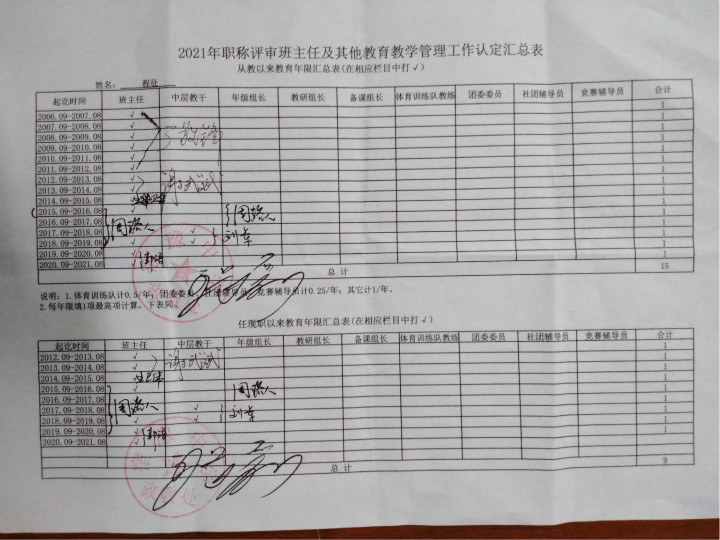 2021年职称评审班主任及其他教育教学管理工作认定汇总表
从教以来教育年限汇总表(在相应栏目中打√)
姓名: 程征
起讫时间 班主任 中层教干 年级组长 教研组长 备课组长 体育训练队教练 团委委员 社团辅导员 竞赛辅导员 合计
2006.09-2007.08 √ 1
2007.09-2008.08 √ 1
2008.09-2009.08 √ 1
2009.09-2010.08 √ 1
2010.09-2011.08 √ 1
2011.09-2012.08 √ 1
2012.09-2013.08 √ 1
2013.09-2014.08 √ 1
2014.09-2015.08 1
2015.09-2016.08 √ 1
2016.09-2017.08 周路人 周路人 1
2017.09-2018.08 √ √ 刘幸 1
2018.09-2019.08 √ √ 1
2019.09-2020.08 √ 1
2020.09-2021.08 √ 1
总 计 15
说明: 1.体育训练队计0.5/年; 团委委员、社团辅导员、竞赛辅导员计0.25/年; 其它计1/年。
2.每年限填1项最高项计算。下表同。
任现职以来教育年限汇总表(在相应栏目中打√)
起讫时间 班主任 中层教干 年级组长 教研组长 备课组长 体育训练队教练 团委委员 社团辅导员 竞赛辅导员 合计
2012.09-2013.08 √ 1
2013.09-2014.08 √ 1
2014.09-2015.08 1
2015.09-2016.08 √ 周路人 1
2016.09-2017.08 周路人 1
2017.09-2018.08 √ 刘幸 1
2018.09-2019.08 √ √ 1
2019.09-2020.08 √ 1
2020.09-2021.08 1
总 计 9
政 处